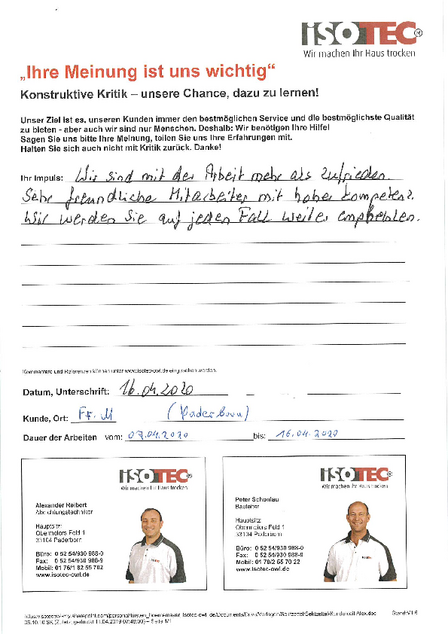 ISOTEC®
Wir machen Ihr Haus trocken
„Ihre Meinung ist uns wichtig“
Konstruktive Kritik – unsere Chance, dazu zu lernen!
Unser Ziel ist es, unseren Kunden immer den bestmöglichen Service und die bestmöglichste Qualität
zu bieten - aber auch wir sind nur Menschen. Deshalb: Wir benötigen Ihre Hilfe!
Sagen Sie uns bitte Ihre Meinung, teilen Sie uns Ihre Erfahrungen mit.
Halten Sie sich auch nicht mit Kritik zurück. Danke!
Ihr Impuls: Wir sind mit der Arbeit mehr als zufrieden.
Sehr freundliche Mitarbeiter mit hoher Kompetenz.
Wir werden Sie auf jeden Fall weiter empfehlen.
Datum, Unterschrift: 16.04.2020
Kunde, Ort: Fr. M (Paderborn)
Dauer der Arbeiten vom: 07.04.2020 bis: 16.04.2020
ISOTEC®
Wir machen Ihr Haus trocken
Alexander Reibert
Abdichtungstechniker
Hauptsitz:
Obermeiers Feld 1
33104 Paderborn
Büro: 0 52 54/930 988-0
www.isotec-owl.de
ISOTEC®
Wir machen Ihr Haus trocken
Peter Schonlau
Bauleiter
Hauptsitz:
Obermeiers Feld 1
33104 Paderborn
Büro: 0 52 54/930 988-0
Mobil: 01 70/2 65 70 22
www.isotec-owl.de